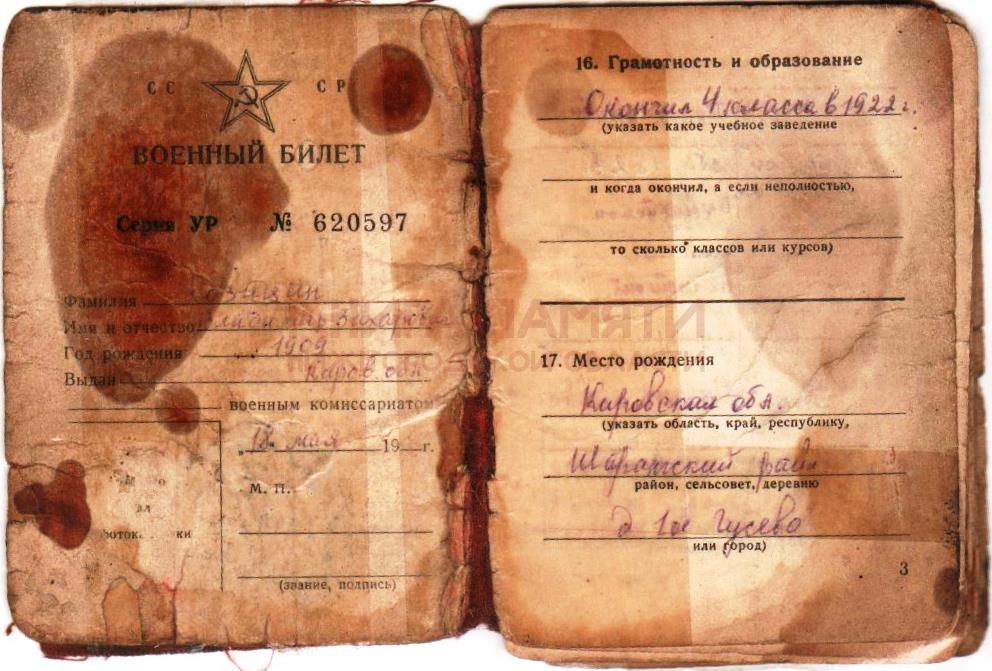 СС СР
ВОЕННЫЙ БИЛЕТ
Серия УР № 620597
Фамилия
Имя и отчество Захарович
Год рождения 1909
Выдан Киров. обл.
военным комиссариатом
„18 мая 19 г.
М. П.
(звание, подпись)
16. Грамотность и образование
Окончил 4 класса в 1922 г.
(указать какое учебное заведение
и когда окончил, а если неполностью,
то сколько классов или курсов)
ПАМЯТИ
17. Место рождения
Кировская обл.
(указать область, край, республику,
район, сельсовет, деревню
д 1ое Гусево
или город)
3